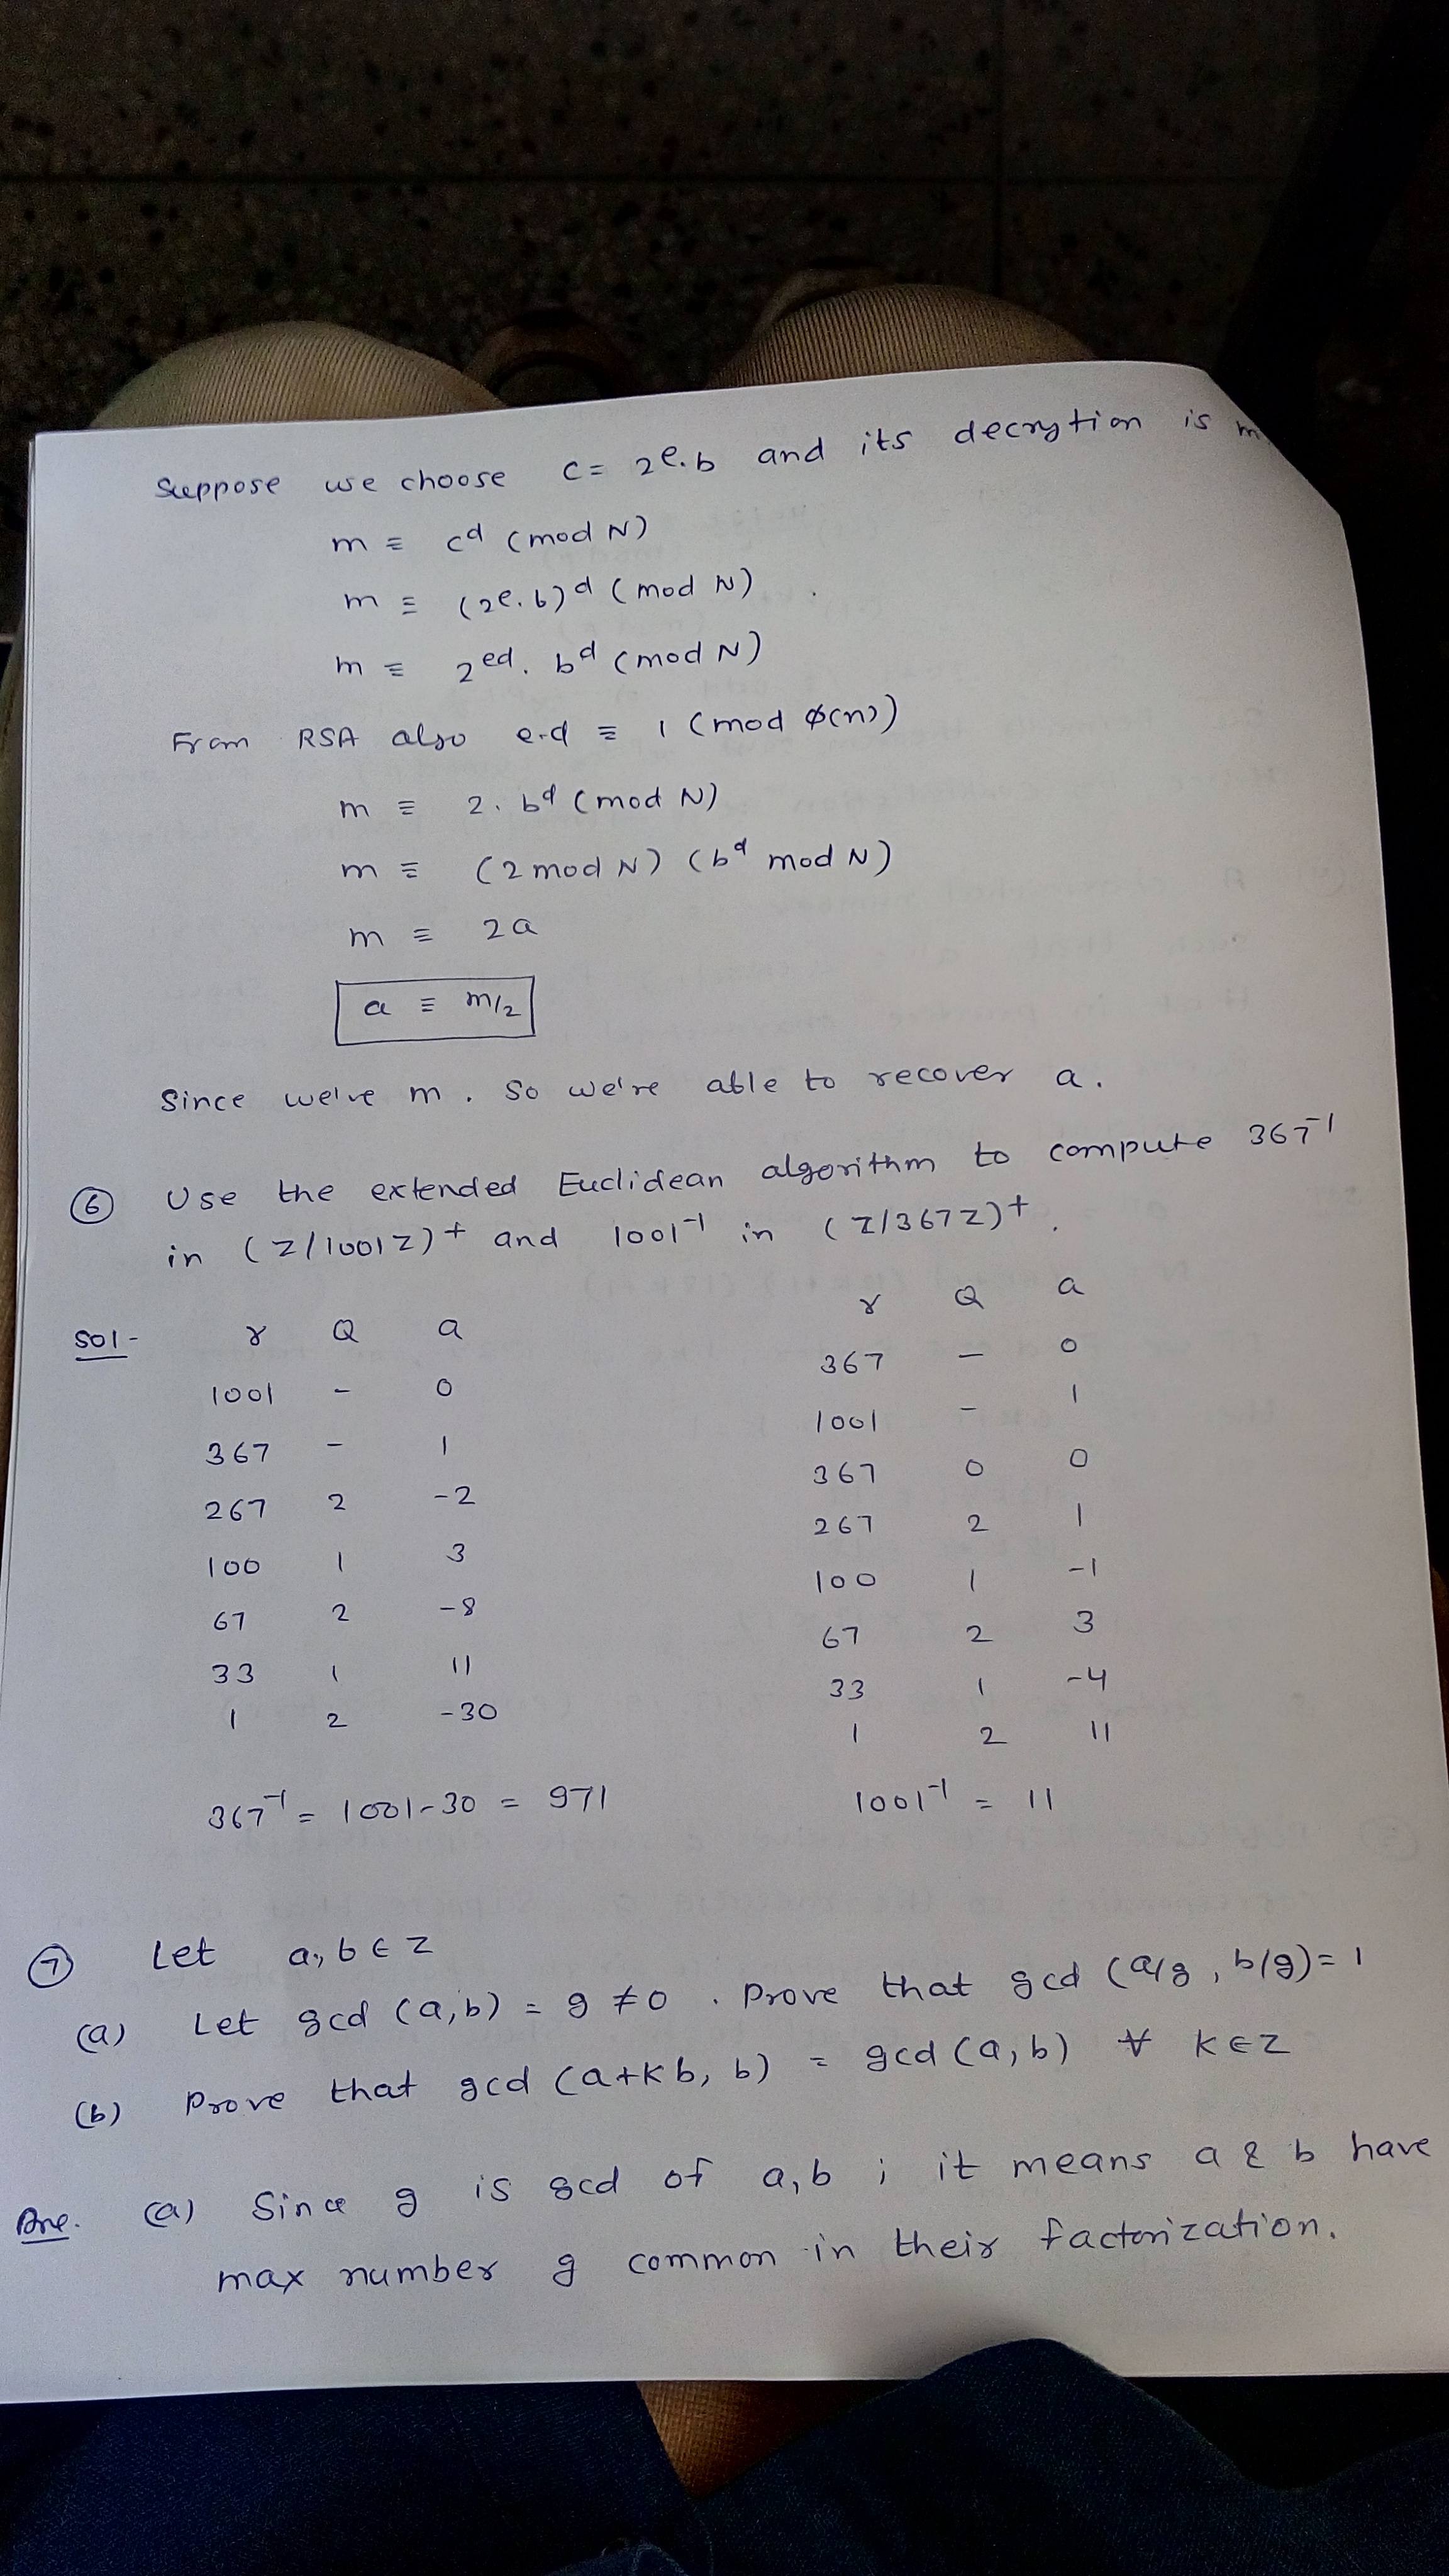 Suppose we choose c = 2^e.b and its decrytion is m
m ≡ c^d (mod N)
m ≡ (2^e.b)^d (mod N)
m ≡ 2^ed. b^d (mod N)
From RSA also e.d ≡ 1 (mod φ(n))
m ≡ 2. b^d (mod N)
m ≡ (2 mod N) (b^d mod N)
m ≡ 2a
a ≡ m/2
Since we've m. So we're able to recover a.
⑥ Use the extended Euclidean algorithm to compute 367^-1
in (Z/1001Z)^+ and 1001^-1 in (Z/367Z)^+.
Sol-
r Q a
1001 - 0
367 - 1
267 2 -2
100 1 3
67 2 -8
33 1 11
1 2 -30
367^-1 = 1001-30 = 971
r Q a
367 - 0
1001 - 1
367 0 0
267 2 1
100 1 -1
67 2 3
33 1 -4
1 2 11
1001^-1 = 11
⑦ Let a, b ∈ Z
(a) Let gcd (a,b) = g ≠ 0. Prove that gcd (a/g, b/g) = 1
(b) Prove that gcd (a+kb, b) = gcd (a, b) ∀ K ∈ Z
Ans. (a) Since g is gcd of a, b ; it means a & b have
max number g common in their factorization.